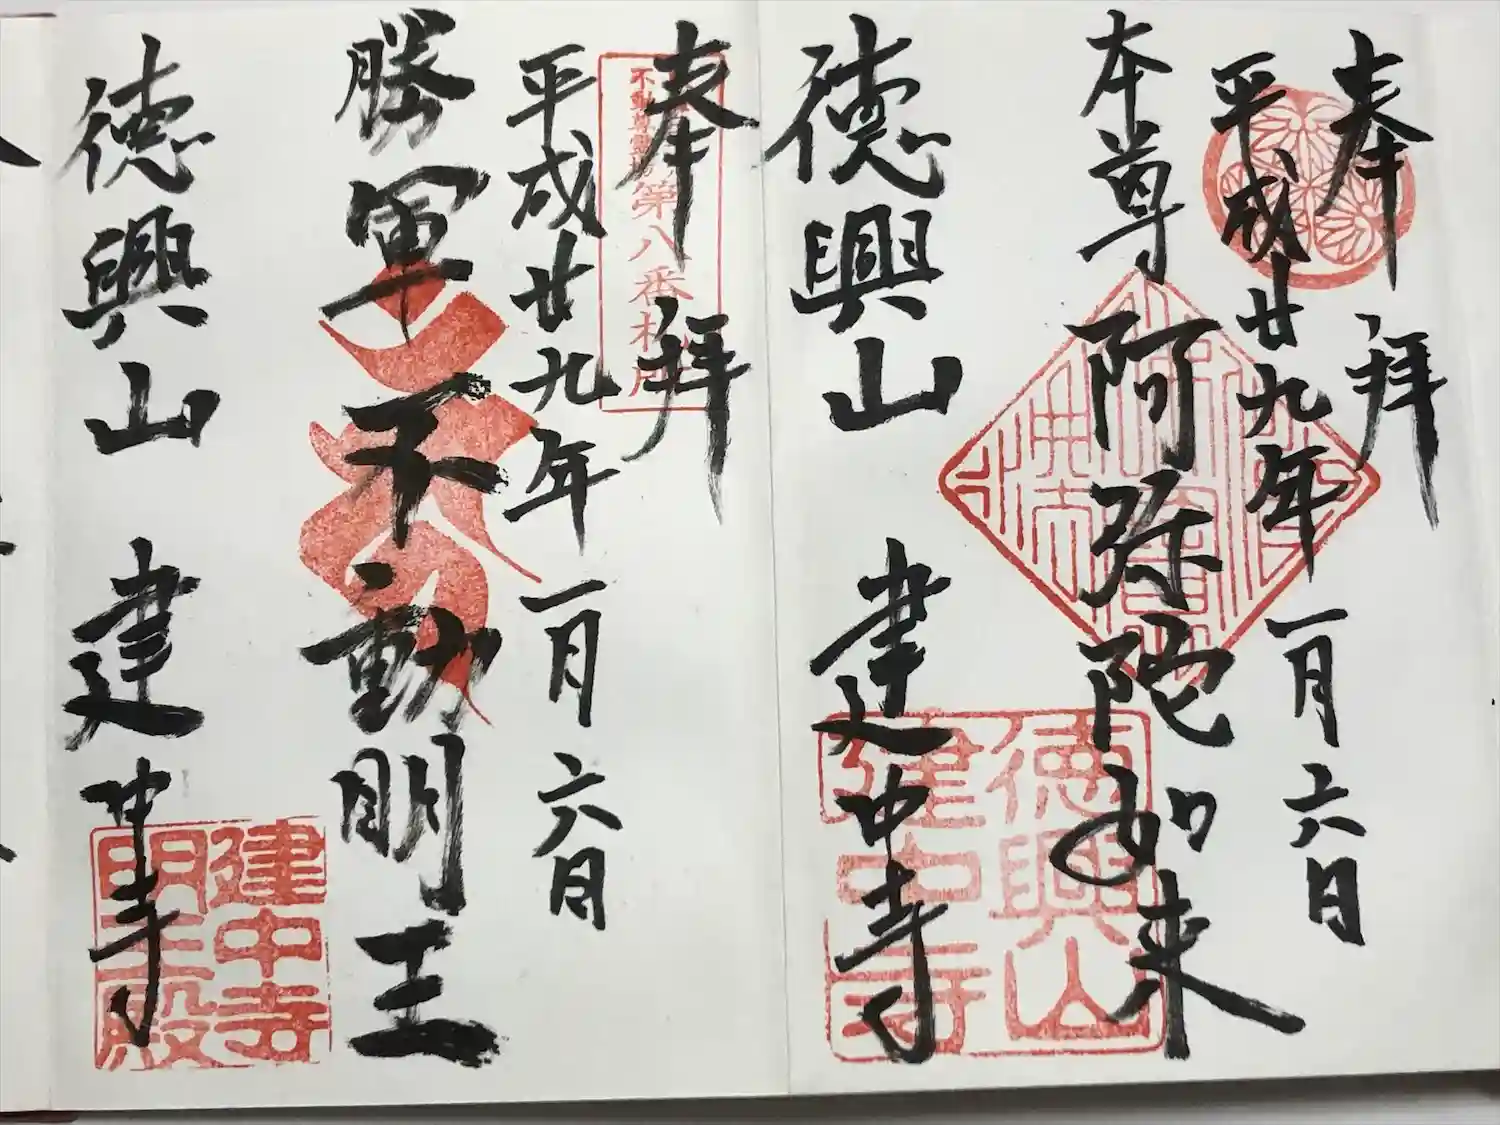 奉拝
平成廿九年一月六日
本尊
阿弥陀如来
德興山建中寺
德興山
建中寺
奉拝
第八番札所
平成廿九年一月六日
勝軍不動明王
德興山建中寺
建中寺
明王殿